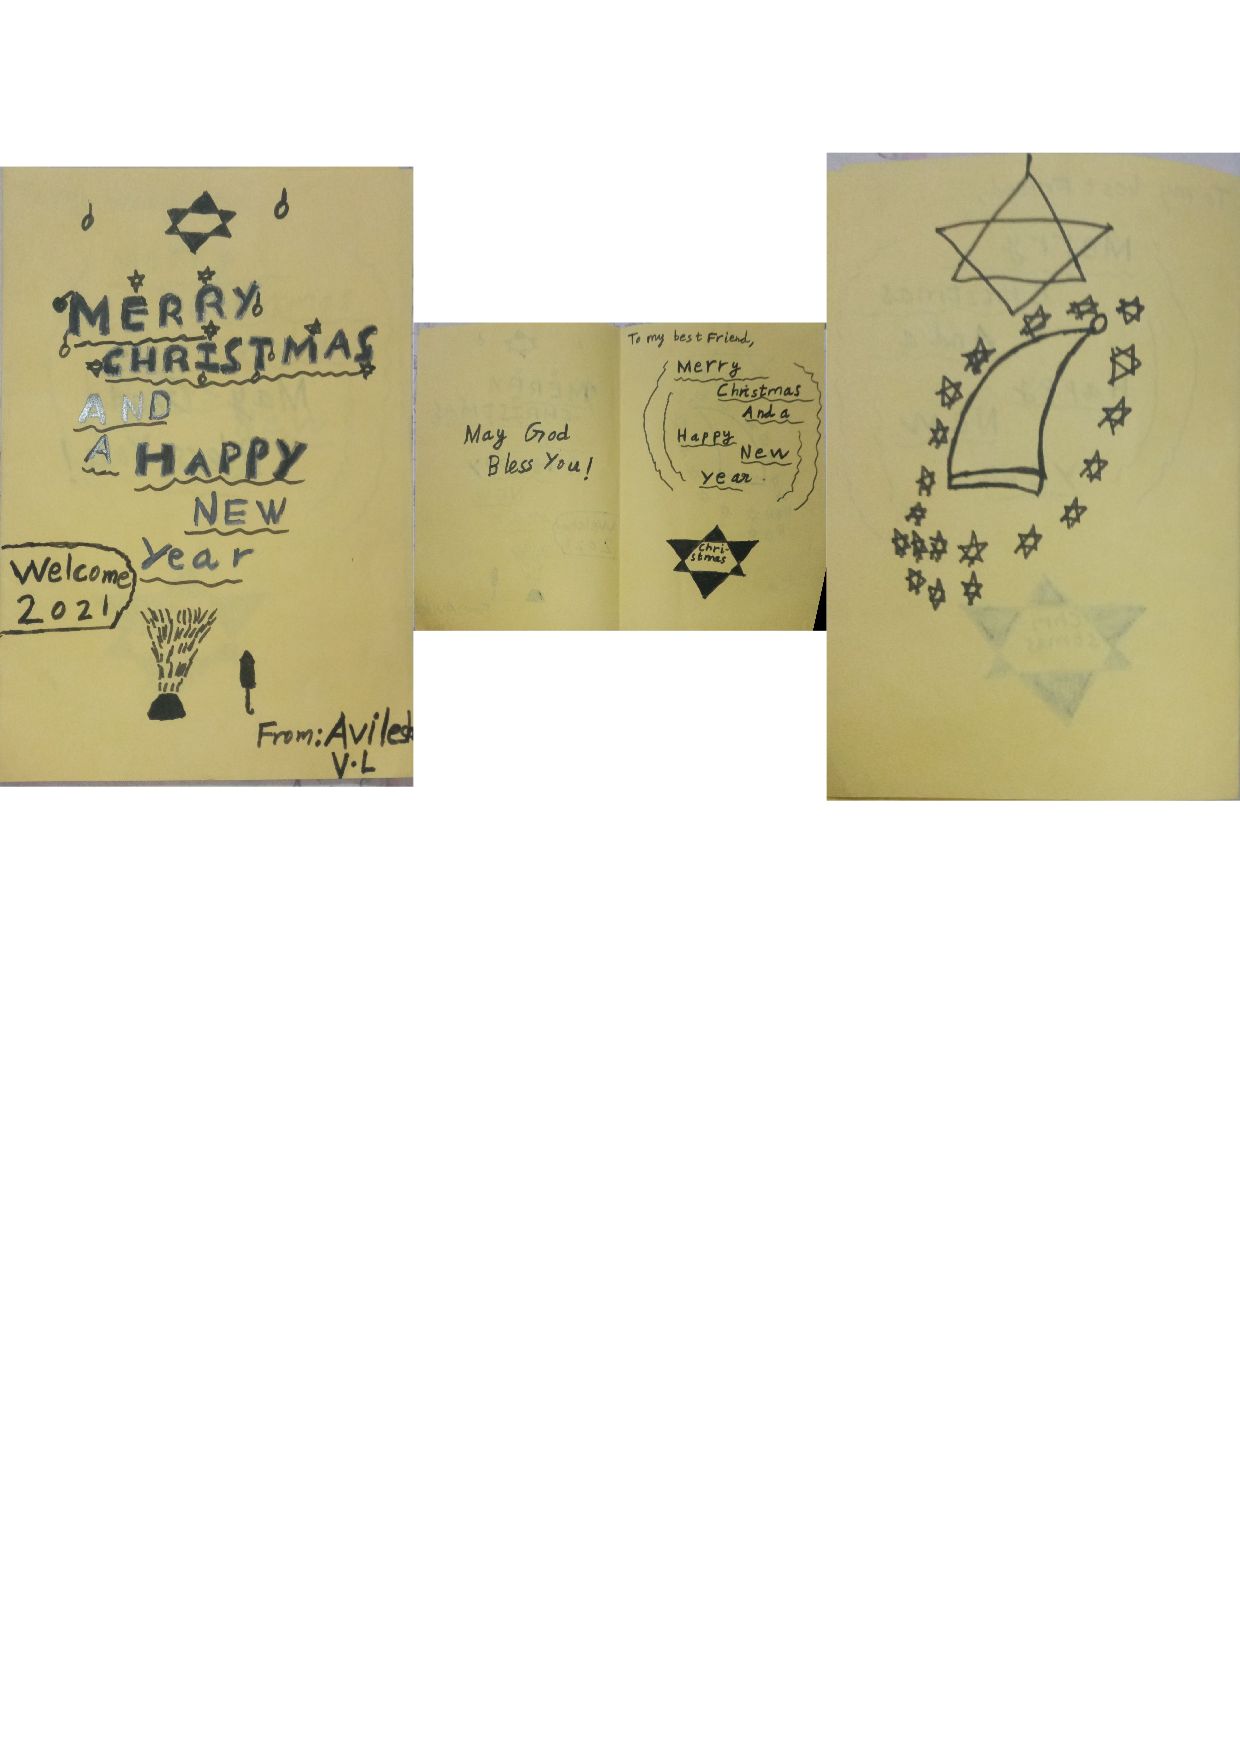 MERRY
CHRISTMAS
AND
A HAPPY
NEW
Year
Welcome
2021
From: Avilesh
V.L
May God
Bless You!
To my best Friend,
Merry
Christmas
And a
Happy
New
Year.
Chri-
stmas